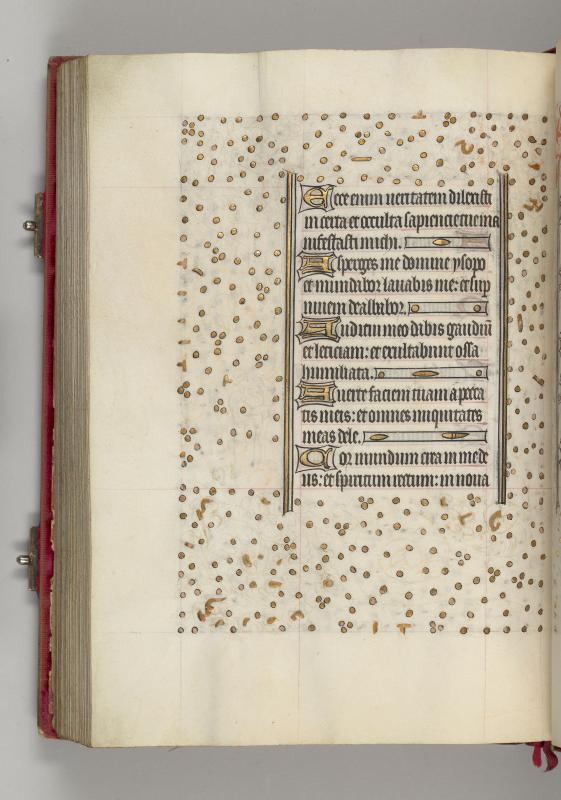 Ecce enim veritatem dilexisti
incerta et occulta sapiencie tue ma
nifestasti michi.
Asperges me domine ysopo
et mundabor lavabis me: et sup
nivem dealbabor.
Auditui meo dabis gaudiū
et leticiam: et exultabunt ossa
humiliata.
Averte faciem tuam a pecca
tis meis: et omnes iniquitates
meas dele.
Cor mundum crea in me de
us: et spiritum rectum: in nova